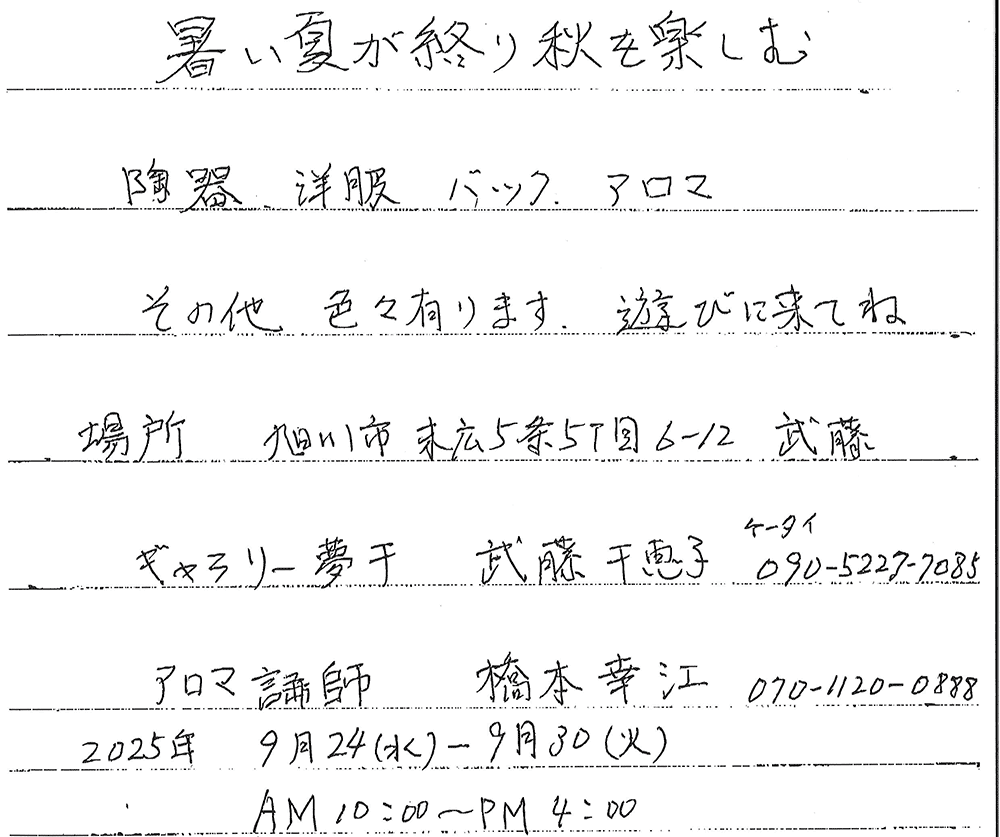 暑い夏が終り秋を楽しむ
陶器 洋服 バック. アロマ
その他 色々有ります. 遊びに来てね
場所 旭川市末広5条5丁目6-12 武藤
ケータイ
ギャラリー夢千 武藤千恵子 090-5227-7085
アロマ講師 橋本幸江 070-1120-0888
2025年 9月24(水)-9月30(火)
AM 10:00~PM 4:00